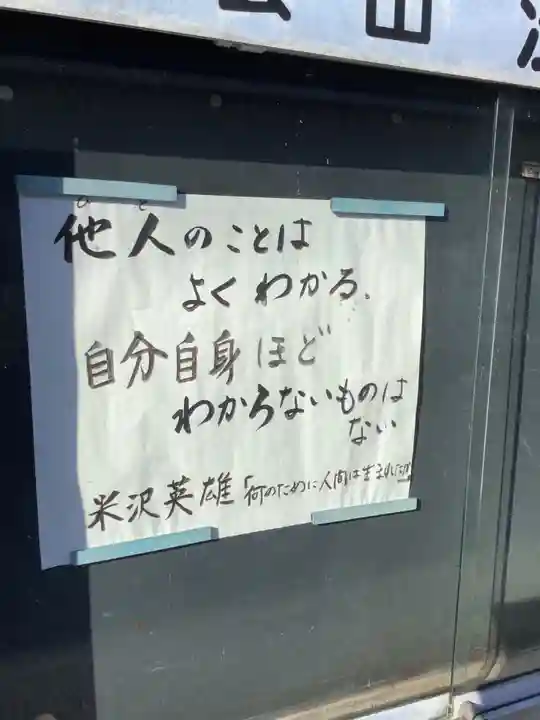 山
他人のことは
よくわかる。
自分自身ほど
わからないものは
ない
米沢英雄「何のために人間は生まれたか